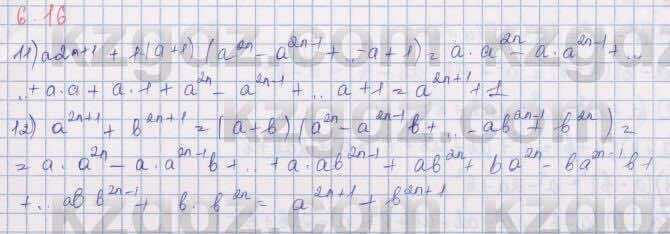 6.16
11) a2n+1 + 1 (a+1) (a^2n - a^2n-1 + ..-a+1) = a·a^2n - a·a^2n-1 + ..
..+ a·a + a·1 + a^2n - a^2n-1 + ... a+1 = a^2n+1 + 1
12) a^2n+1 + b^2n+1 = (a+b) (a^2n - a^2n-1 b + ... - ab^2n-1 + b^2n) =
= a·a^2n - a·a^2n-1 b + .. + a·ab^2n-1 + ab^2n + ba^2n - ba^2n-1 b +
+ .. ab b^2n-1 + b·b^2n = a^2n+1 + b^2n+1
kzgdz.com